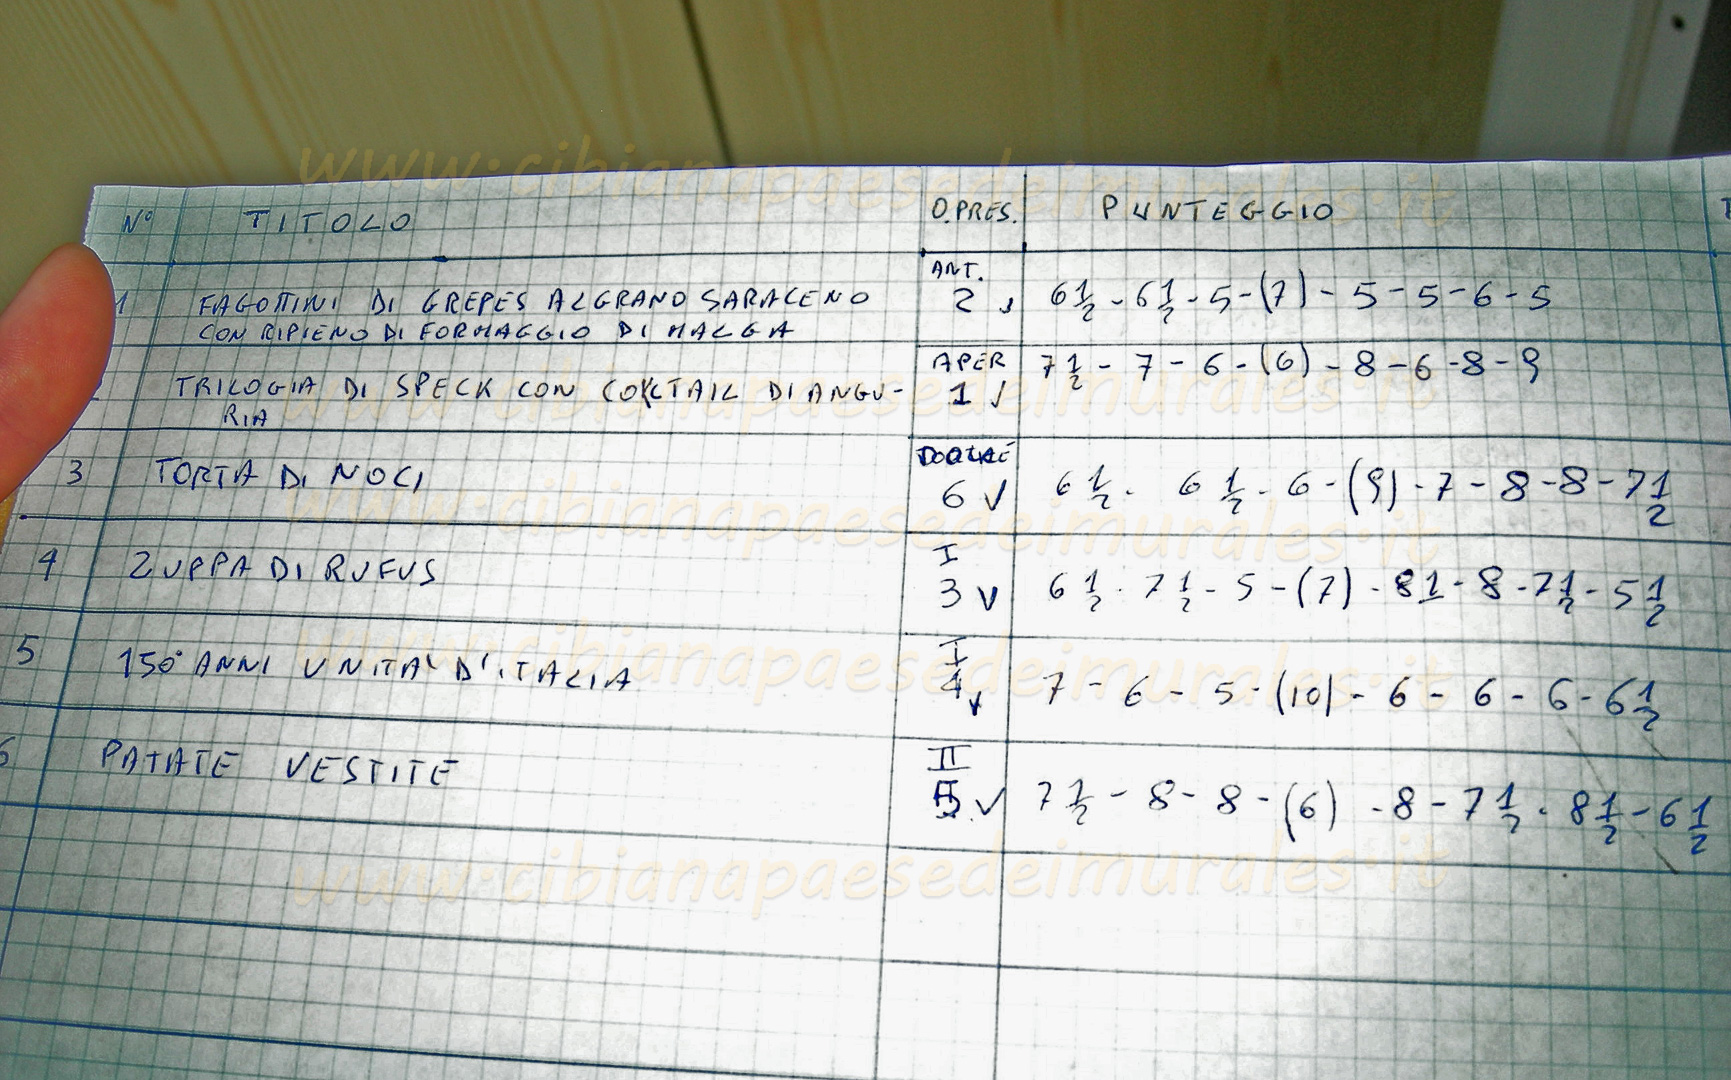 www.cibianapaesedeimurales.it
N° TITOLO O.PRES. PUNTEGGIO
ANT.
1 FAGOTTINI DI GREPES AL GRANO SARACENO 2 6 1/2 - 6 1/2 - 5 - (7) - 5 - 5 - 6 - 5
CON RIPIENO DI FORMAGGIO DI MALGA
APER 7 1/2 - 7 - 6 - (6) - 8 - 6 - 8 - 9
TRILOGIA DI SPECK CON COKCTAIL DI ANGU- 1 ✓
RIA
www.cibianapaesedeimurales.it
3 TORTA DI NOCI 6 ✓ 6 1/2 - 6 1/2 - 6 - (9) - 7 - 8 - 8 - 7 1/2
www.cibianapaesedeimurales.it
I
4 ZUPPA DI RUFUS 3 ✓ 6 1/2 - 7 1/2 - 5 - (7) - 8 1 - 8 - 7 1/2 - 5 1/2
I
5 150° ANNI UNITA' D'ITALIA 4 ✓ 7 - 6 - 5 - (10) - 6 - 6 - 6 - 6 1/2
www.cibianapaesedeimurales.it
II
6 PATATE VESTITE 5 ✓ 7 1/2 - 8 - 8 - (6) - 8 - 7 1/2 - 8 1/2 - 6 1/2
www.cibianapaesedeimurales.it